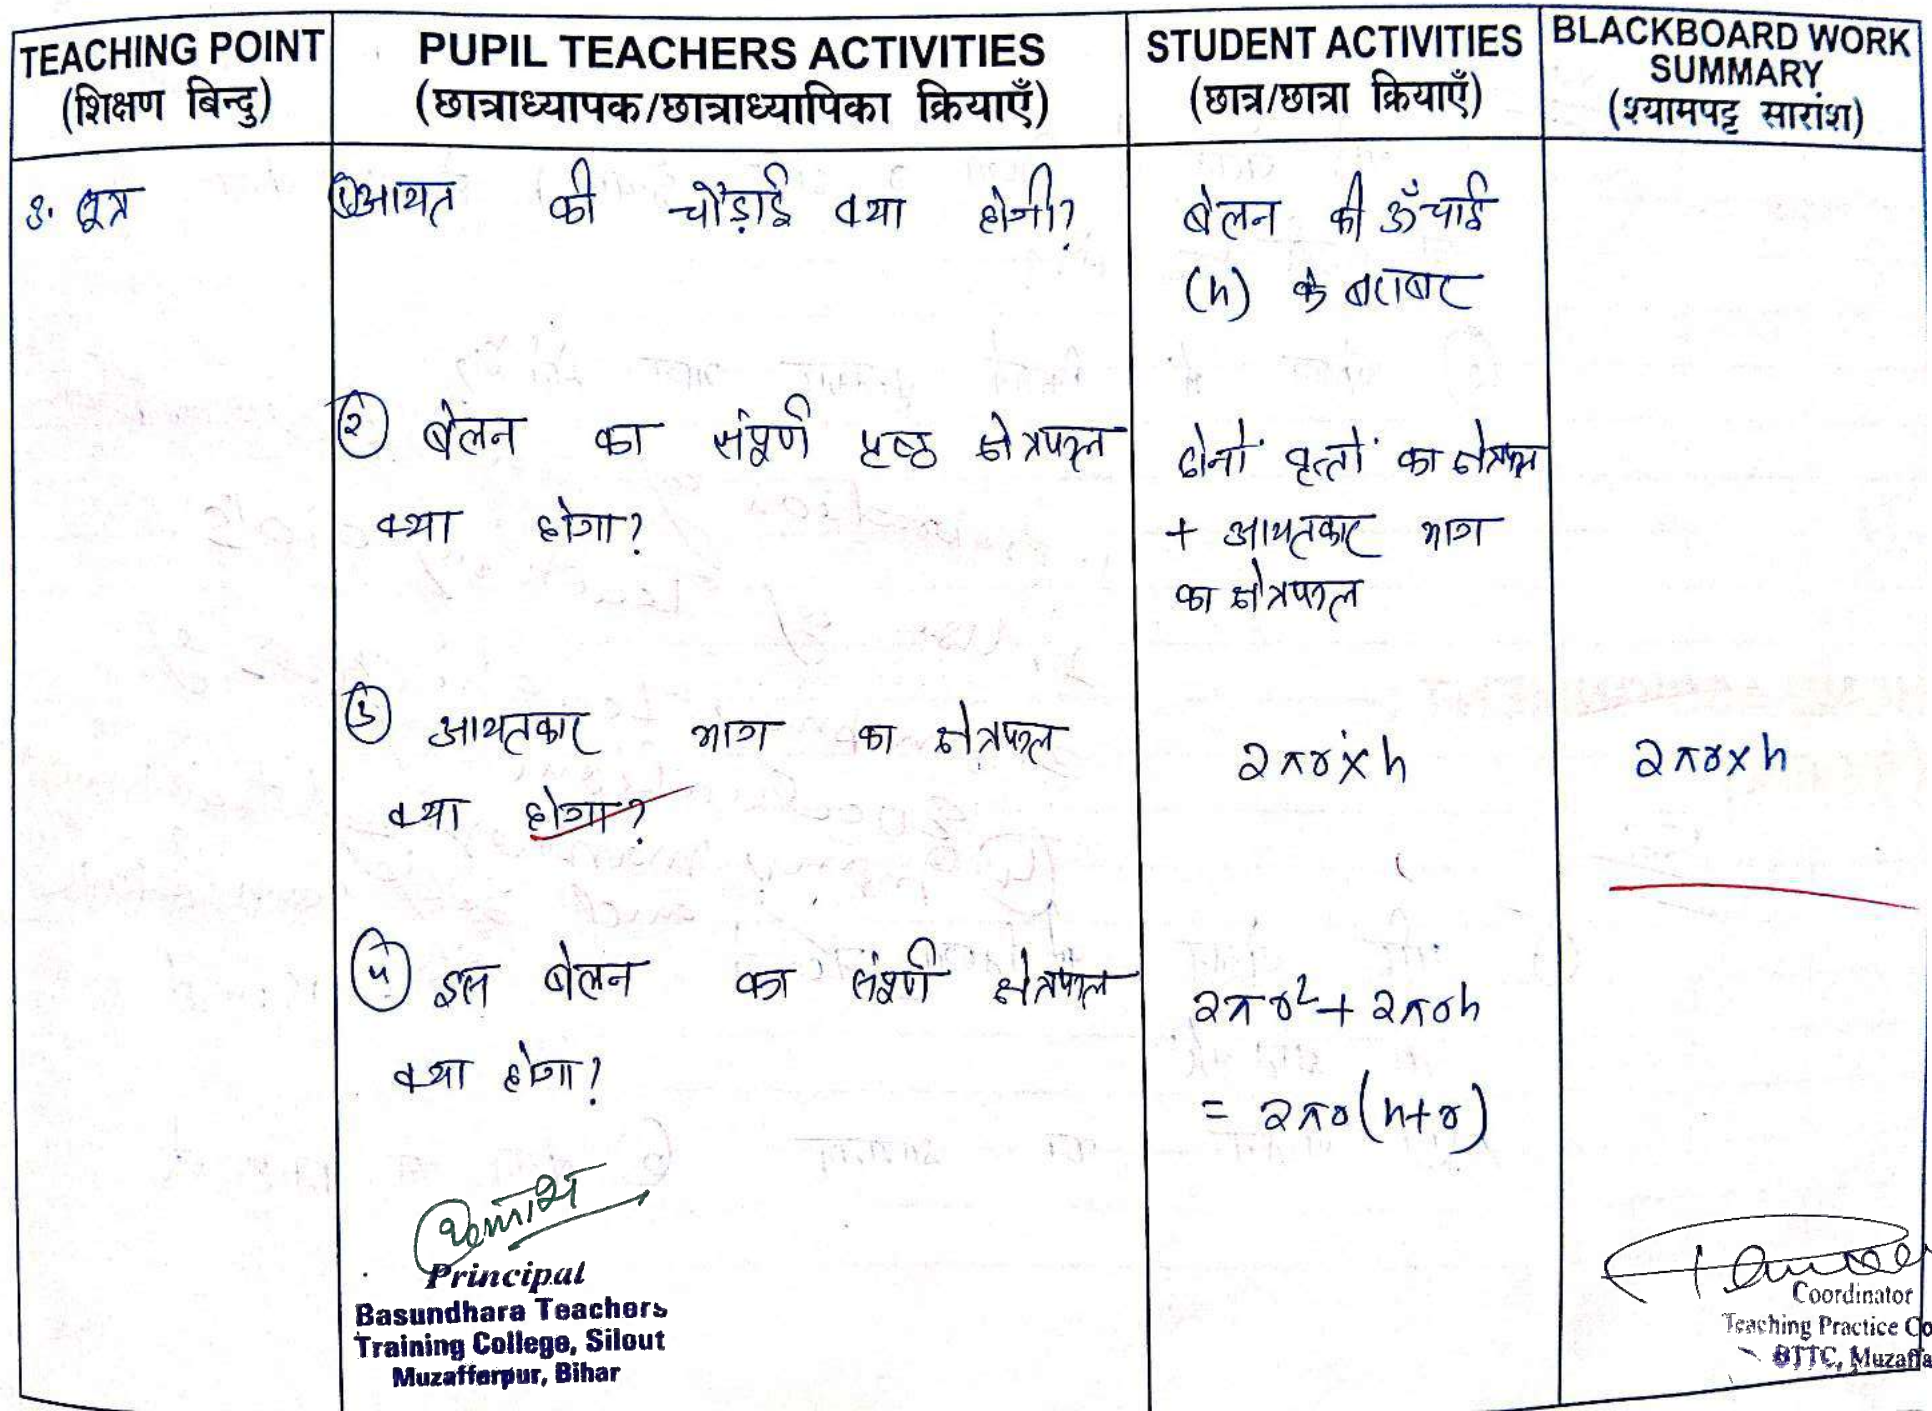 TEACHING POINT
(शिक्षण बिन्दु)
PUPIL TEACHERS ACTIVITIES
(छात्राध्यापक/छात्राध्यापिका क्रियाएँ)
STUDENT ACTIVITIES
(छात्र/छात्रा क्रियाएँ)
BLACKBOARD WORK
SUMMARY
(श्यामपट्ट सारांश)
3. सूत्र
① आयत की चौड़ाई क्या होगी?
बेलन की ऊँचाई
(h) के बराबर
② बेलन का संपूर्ण पृष्ठ क्षेत्रफल
क्या होगा?
दोनों वृत्तों का क्षेत्रफल
+ आयतकार भाग
का क्षेत्रफल
③ आयतकार भाग का क्षेत्रफल
क्या होगा?
2πr×h
2πr×h
④ इस बेलन का संपूर्ण क्षेत्रफल
क्या होगा?
2πr²+2πrh
= 2πr(h+r)
Principal
Basundhara Teachers
Training College, Silout
Muzafferpur, Bihar
Coordinator
Teaching Practice Co
BTTC, Muzaffa